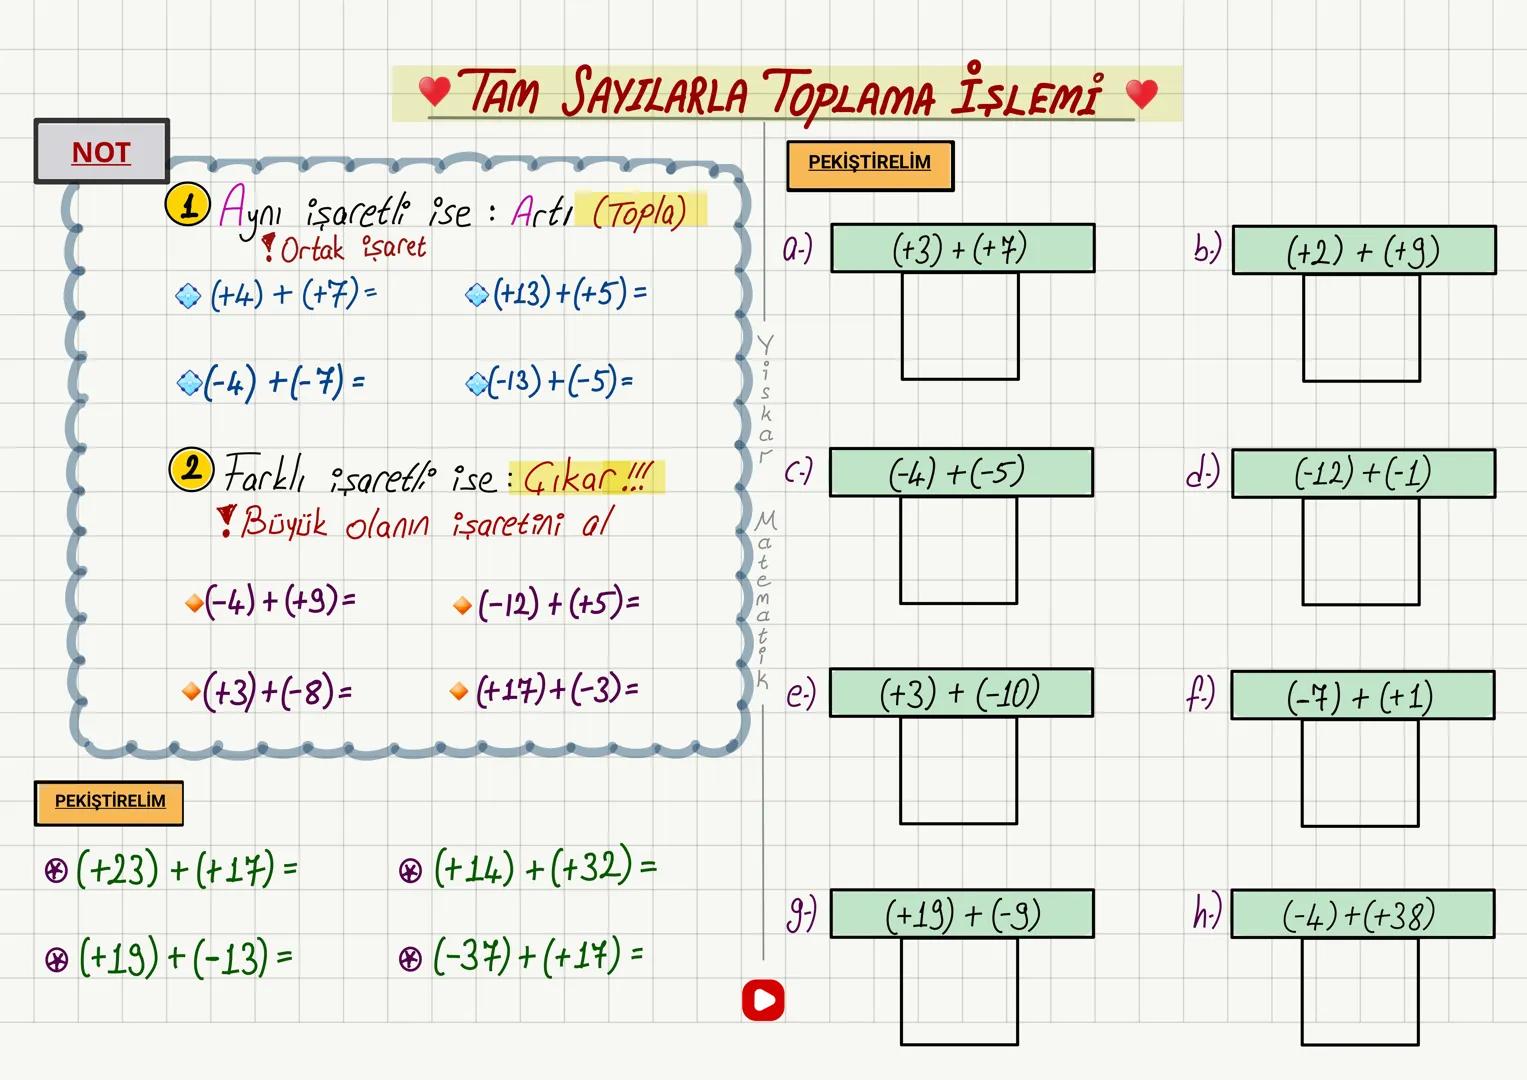 TAM SAYILARLA TOPLAMA İŞLEMİ
NOT
1 Aynı işaretli ise : Artı (Topla)
! Ortak işaret
(+4) + (+7) =
(+13) + (+5) =
(-4) + (-7) =
(-13) + (-5) =
2 Farklı işaretli ise : Çıkar !!!
! Büyük olanın işaretini al
(-4) + (+9) =
(-12) + (+5) =
(+3) + (-8) =
(+17) + (-3) =
PEKİŞTİRELİM
(+23) + (+17) =
(+14) + (+32) =
(+19) + (-13) =
(-37) + (+17) =
Yiskar Matematik
PEKİŞTİRELİM
a-) (+3) + (+7)
b-) (+2) + (+9)
c-) (-4) + (-5)
d-) (-12) + (-1)
e-) (+3) + (-10)
f-) (-7) + (+1)
g-) (+19) + (-9)
h-) (-4) + (+38)